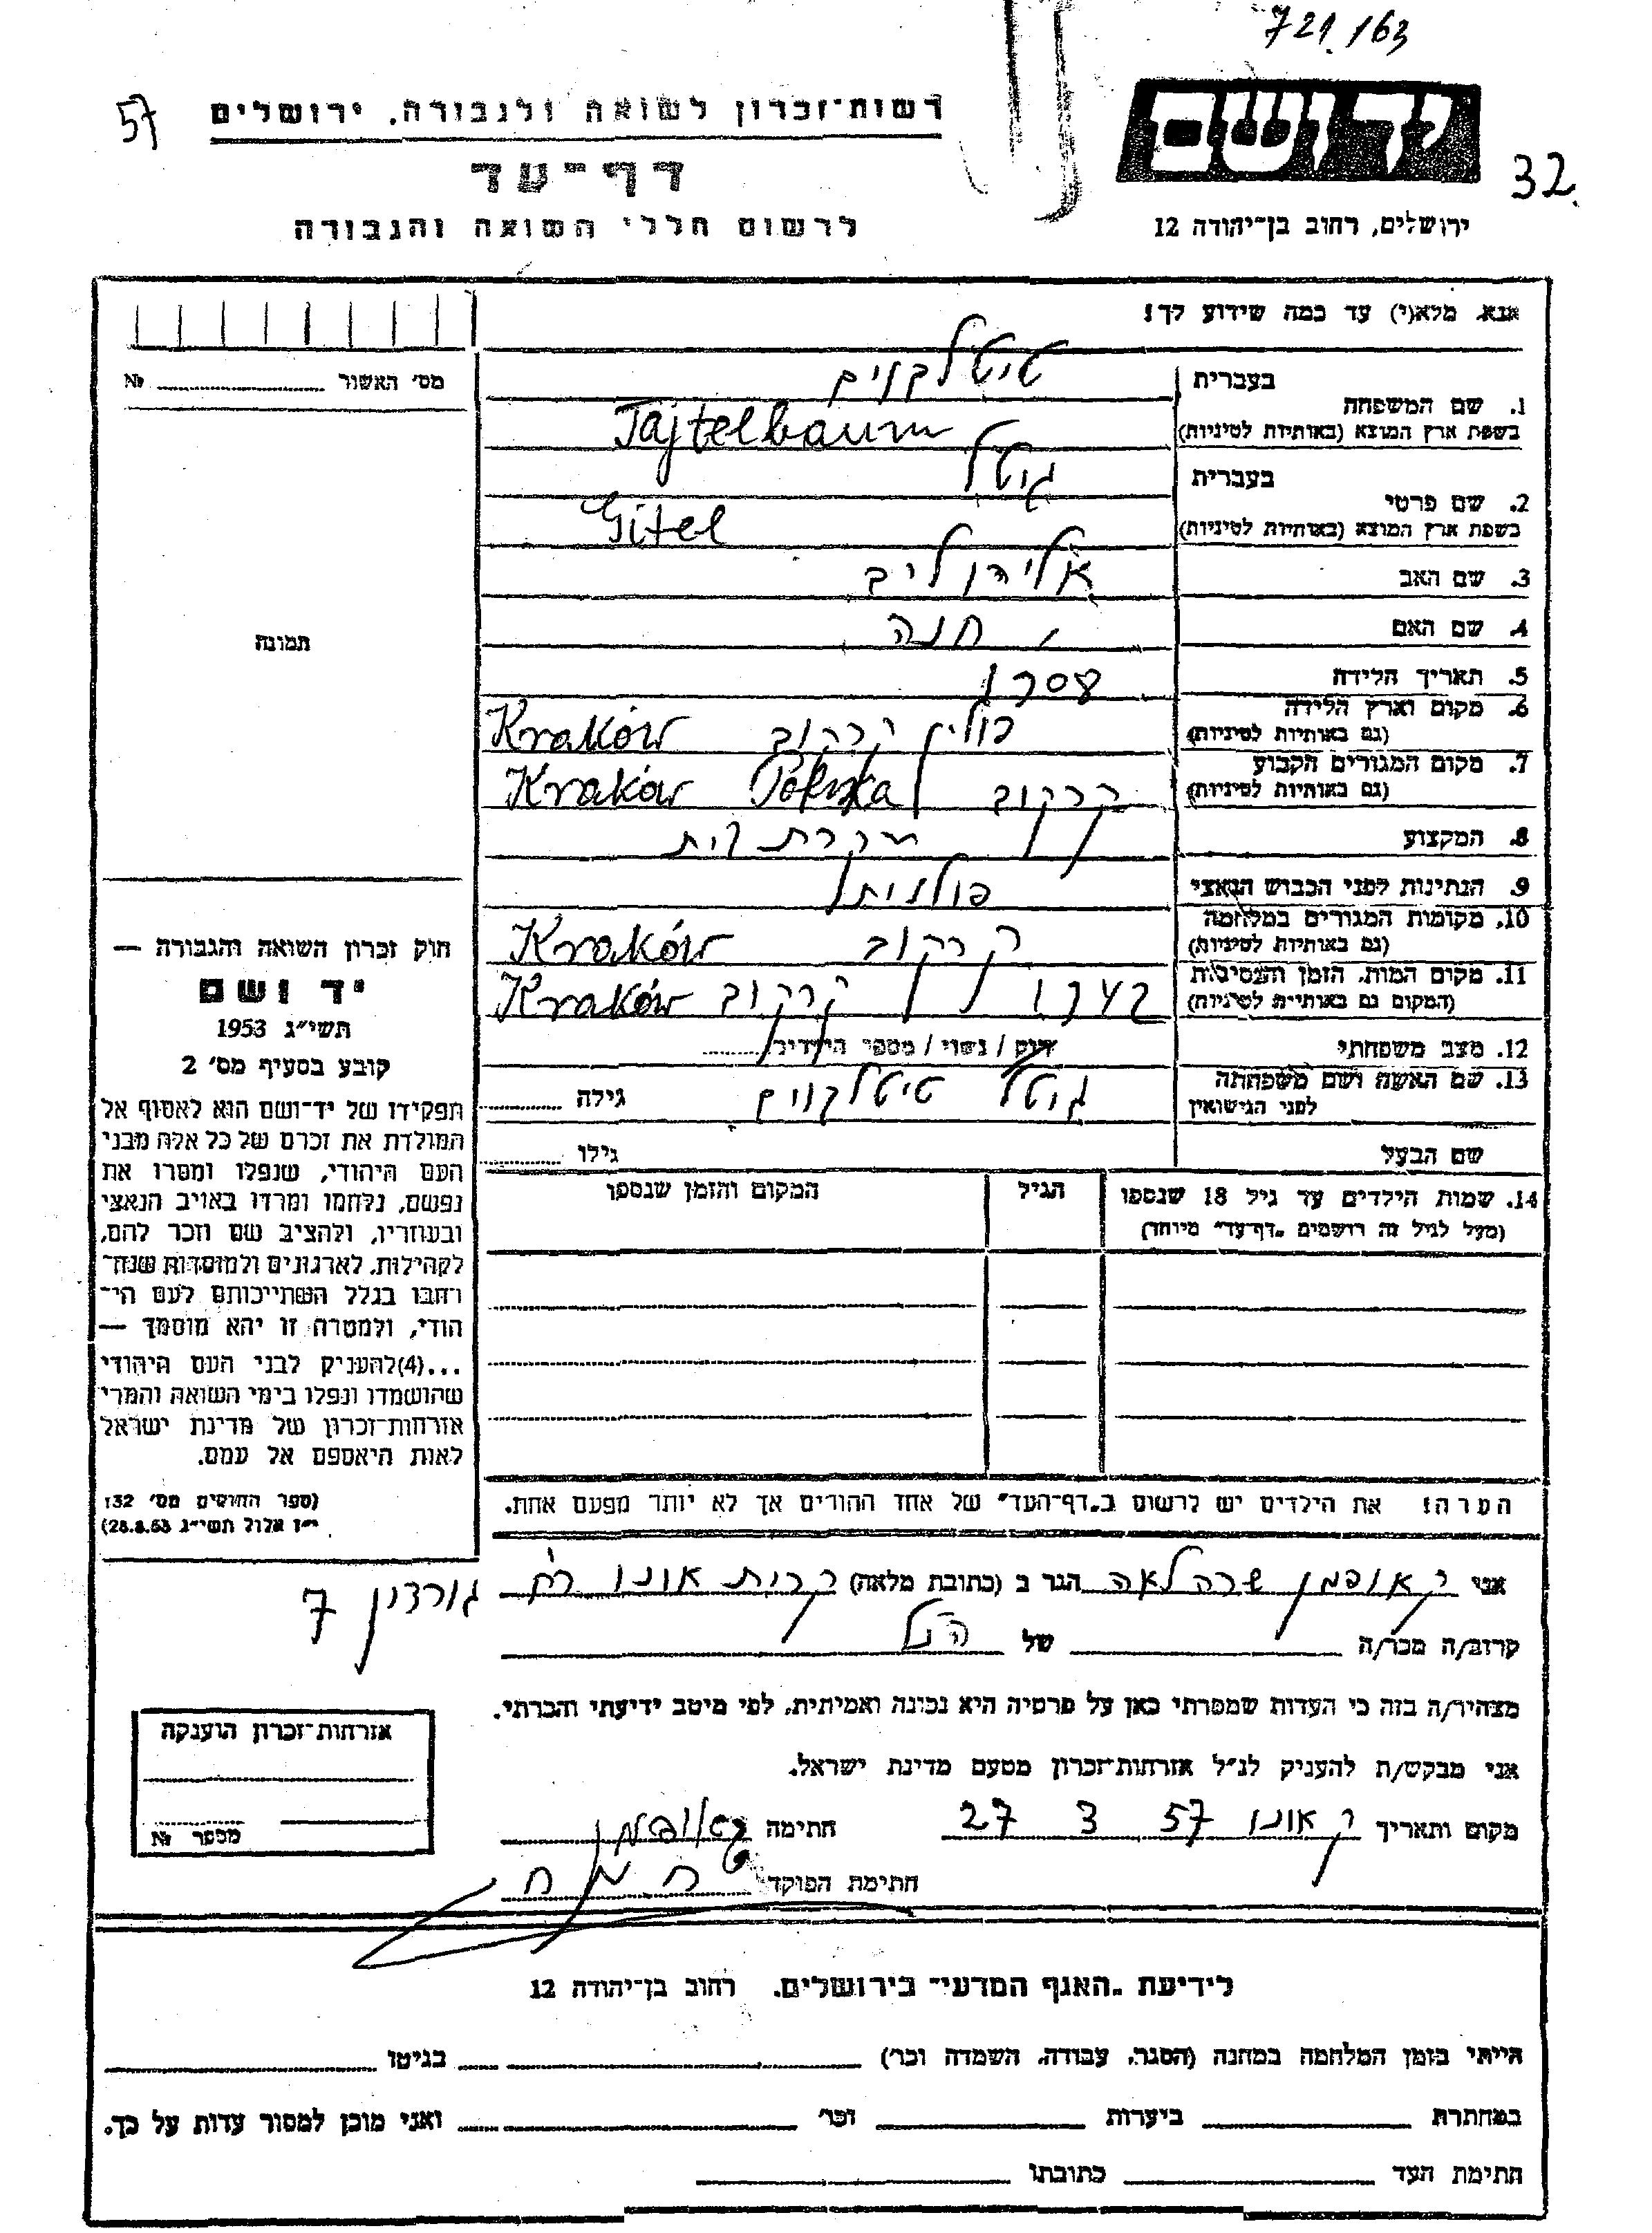 721/163
57
רשות־זכרון לשואה ולגבורה, ירושלים
יד ושם
32
דף־עד
לרשום חללי השואה והגבורה
ירושלים, רחוב בן־יהודה 12
אנא, מלא(י) עד כמה שידוע לך!
מס׳ האשור № 
1. שם המשפחה
בעברית טיטלבוים
בשפת ארץ המוצא (באותיות לטיניות) Tajtelbaum
2. שם פרטי
בעברית גיטל
בשפת ארץ המוצא (באותיות לטיניות) Gitel
3. שם האב אליהו ליב
4. שם האם חנה
5. תאריך הלידה
6. מקום וארץ הלידה
(גם באותיות לטיניות) פולין קרקוב Kraków
7. מקום המגורים הקבוע
(גם באותיות לטיניות) קרקוב Polska Kraków
8. המקצוע עקרת בית
9. הנתינות לפני הכבוש הנאצי פולנית
10. מקומות המגורים במלחמה
(גם באותיות לטיניות) קרקוב Kraków
11. מקום המות, הזמן והנסיבות
(המקום גם באותיות לטיניות) קרקוב Kraków
12. מצב משפחתי רוק / נשוי / מספר הילדים
13. שם האשה ושם משפחתה
לפני הנישואין גיטל טיטלבוים גילה
שם הבעל גילו
14. שמות הילדים עד גיל 18 שנספו
(מעל לגיל זה רושמים „דף־עד״ מיוחד)
הגיל
המקום והזמן שנספו
הערה! את הילדים יש לרשום ב„דף־העד״ של אחד ההורים אך לא יותר מפעם אחת.
תמונה
חוק זכרון השואה והגבורה —
יד ושם
תשי״ג 1953
קובע בסעיף מס׳ 2
תפקידו של יד־ושם הוא לאסוף אל
המולדת את זכרם של כל אלה מבני
העם היהודי, שנפלו ומסרו את
נפשם, נלחמו ומרדו באויב הנאצי
ובעוזריו, ולהציב שם וזכר להם,
לקהילות, לארגונים ולמוסדות שנח־
רבו בגלל השתייכותם לעם הי־
הודי, ולמטרה זו יהא מוסמך —
...(4)להעניק לבני העם היהודי
שהושמדו ונפלו בימי השואה והמרי
אזרחות־זכרון של מדינת ישראל
לאות היאספם אל עמם.
(ספר החוקים מס׳ 132
י״ז אלול תשי״ג 28.8.53)
אני קאופמן שרה לאה הגר ב (כתובת מלאה) קרית אונו רח׳ גורדון 7
קרוב/ה מכר/ה של הנ״ל
מצהיר/ה בזה כי העדות שמסרתי כאן על פרטיה היא נכונה ואמיתית, לפי מיטב ידיעתי והכרתי.
אני מבקש/ת להעניק לנ״ל אזרחות־זכרון מטעם מדינת ישראל.
מקום ותאריך ק אונו 57 3 27 חתימה קאופמן
חתימת הפוקד
אזרחות־זכרון הוענקה
מספר №
לידיעת „האגף המדעי״ בירושלים, רחוב בן־יהודה 12
הייתי בזמן המלחמה במחנה (הסגר, עבודה, השמדה וכו׳) בגיטו
במחתרת ביערות וכו׳ ואני מוכן למסור עדות על כך.
חתימת העד כתובתו